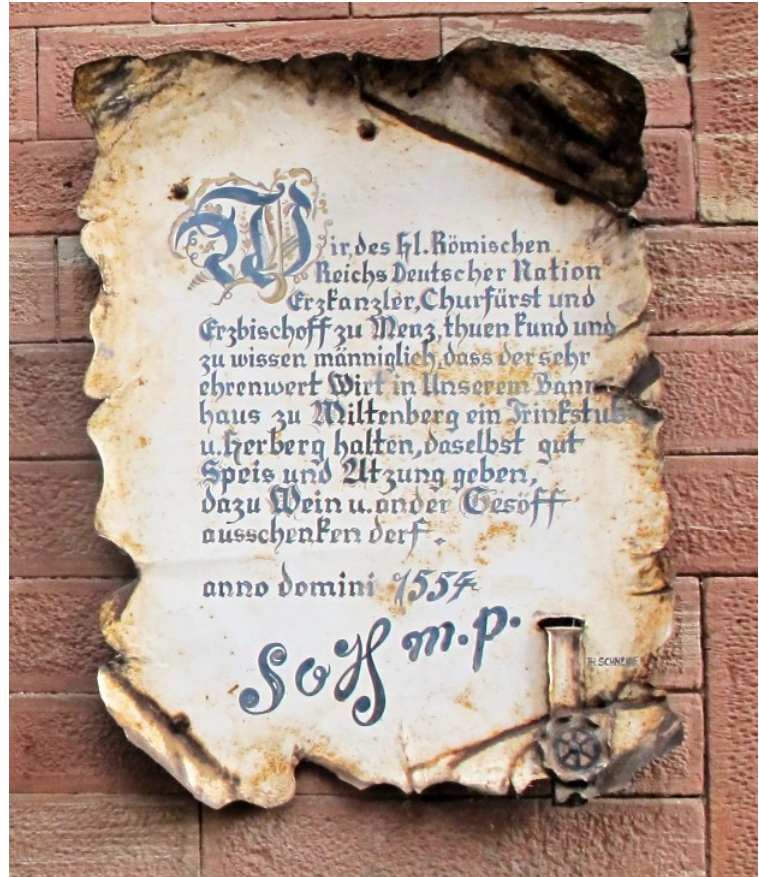 Wir, des Hl. Römischen
Reichs Deutscher Nation
Erzkanzler, Churfürst und
Erzbischoff zu Menz, thuen kund und
zu wissen männiglich, dass der sehr
ehrenwert Wirt in Unserem Bann-
haus zu Miltenberg ein Trinkstub
u. Herberg halten, daselbst gut
Speis und Atzung geben,
dazu Wein u. ander Gesöff
ausschenken derf.
anno domini 1554
m.p.
TH.